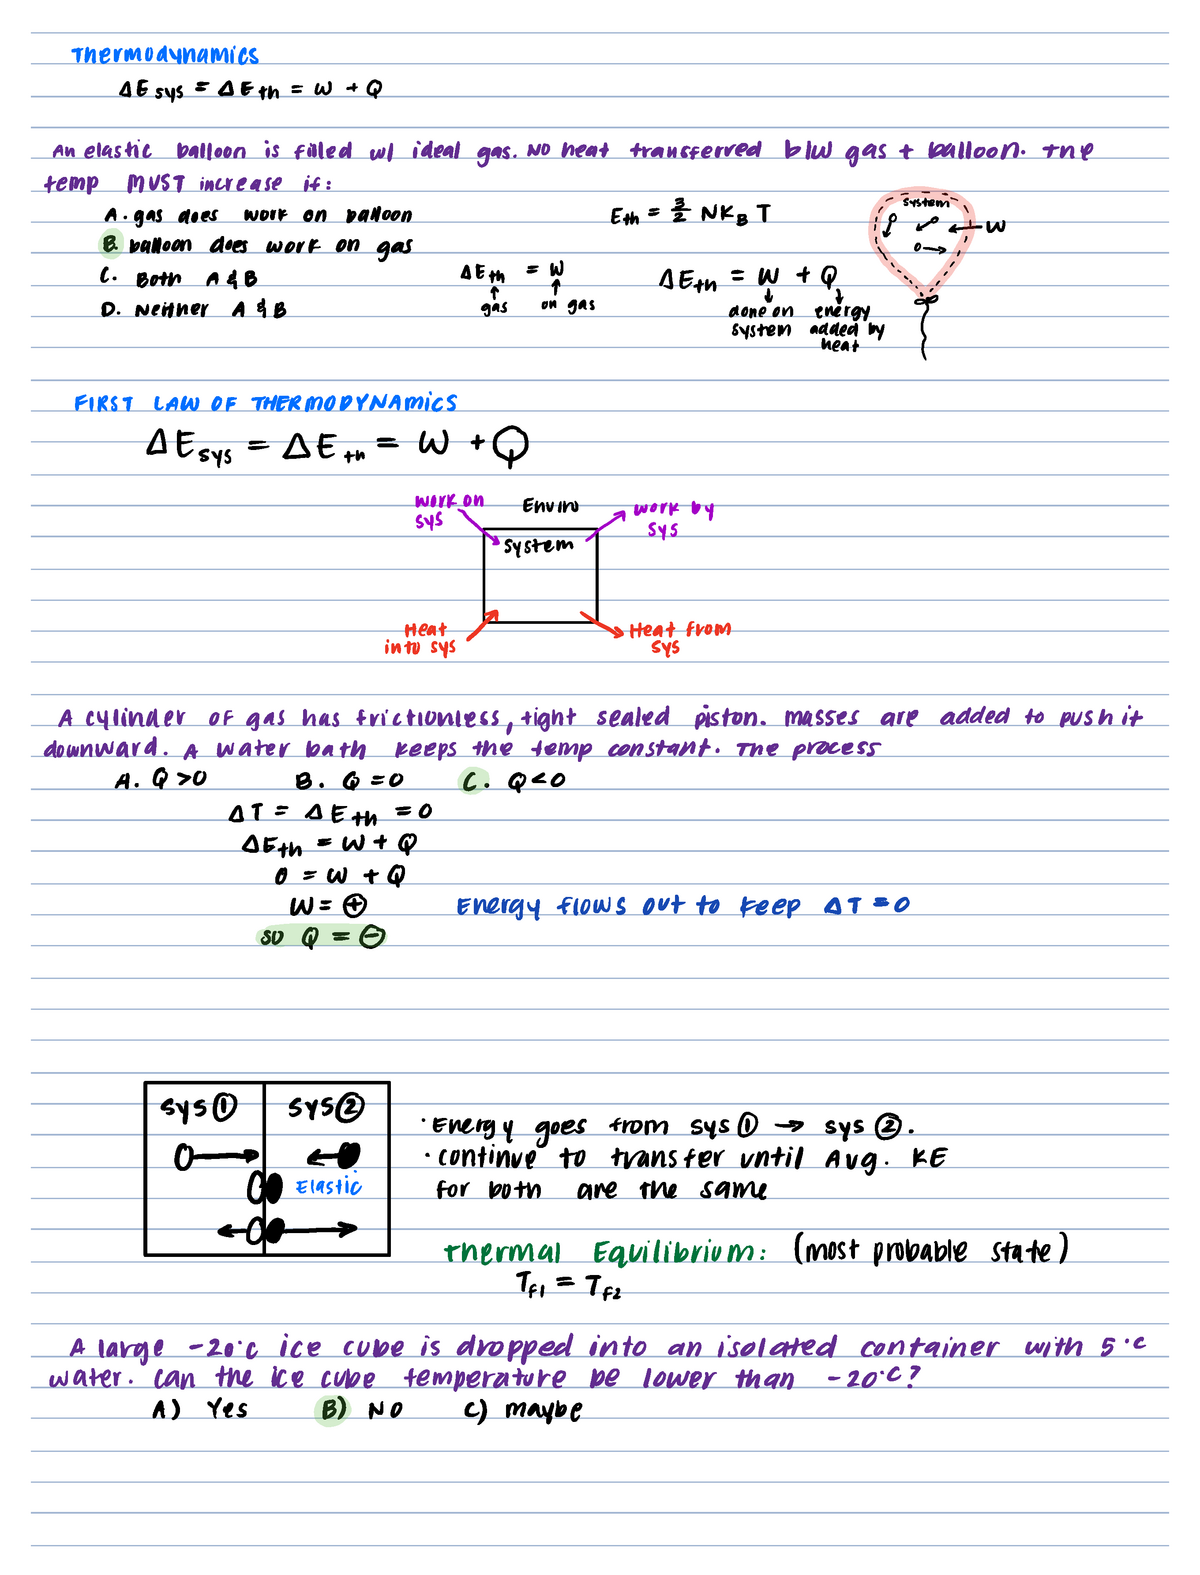 Thermodynamics
ΔE sys = ΔE th = W + Q
An elastic balloon is filled w/ ideal gas. No heat transferred b/w gas + balloon. The
temp MUST increase if:
A. gas does work on balloon
B. balloon does work on gas
C. Both A & B
D. Neither A & B
ΔEth = W
↑ ↑
gas on gas
Eth = 3/2 NKB T
ΔEth = W + Q
↓ ↓
done on energy
system added by
heat
system
W
FIRST LAW OF THERMODYNAMICS
ΔEsys = ΔEth = W + Q
work on
sys
Enviro
work by
sys
system
Heat
into sys
Heat from
sys
A cylinder of gas has frictionless, tight sealed piston. masses are added to push it
downward. A water bath keeps the temp constant. The process
A. Q >0 B. Q =0 C. Q<0
ΔT = ΔEth = 0
ΔEth = W + Q
0 = W + Q
W = ⊕
Energy flows out to keep ΔT = 0
so Q = ⊖
sys ① sys ②
Elastic
· Energy goes from sys ① → sys ②.
· continue to transfer until Avg. KE
for both are the same
Thermal Equilibrium: (most probable state)
Tf1 = Tf2
A large -20°C ice cube is dropped into an isolated container with 5°C
water. Can the ice cube temperature be lower than -20°C?
A) Yes B) NO C) maybe